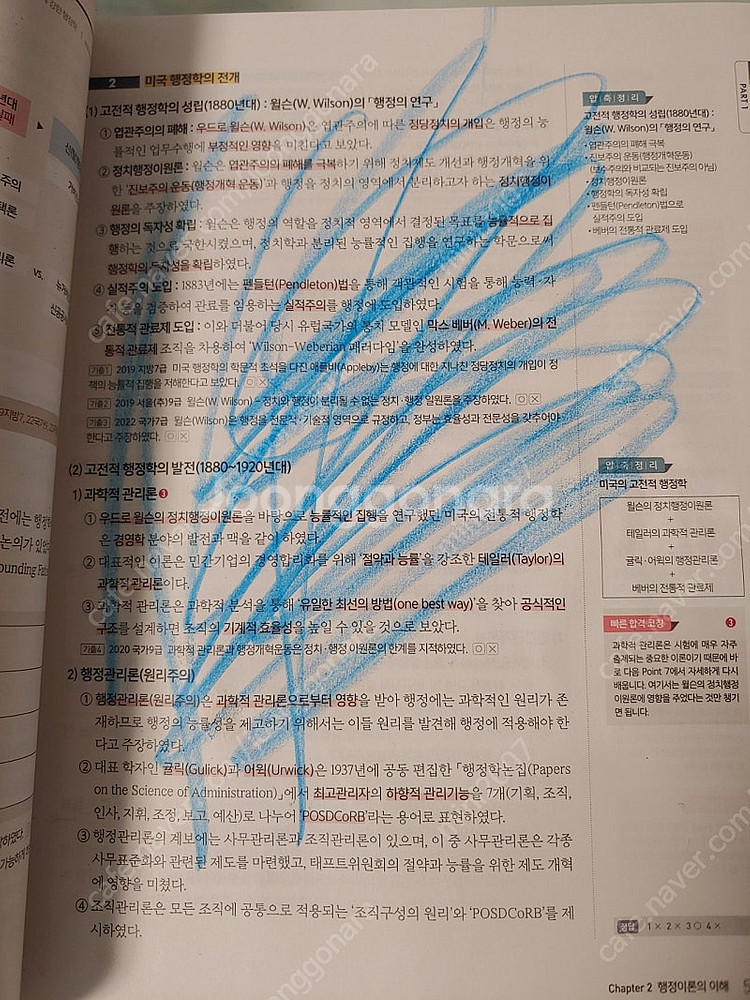 강한 행정학
2 미국 행정학의 전개
(1) 고전적 행정학의 성립(1880년대) : 윌슨(W. Wilson)의 「행정의 연구」
① 엽관주의의 폐해 : 우드로 윌슨(W. Wilson)은 엽관주의에 따른 정당정치의 개입은 행정의 능
률적인 업무수행에 부정적인 영향을 미친다고 보았다.
② 정치행정이원론 : 윌슨은 엽관주의의 폐해를 극복하기 위해 정치제도 개선과 행정개혁을 위
한 '진보주의 운동(행정개혁 운동)'과 행정을 정치의 영역에서 분리하고자 하는 정치행정이
원론을 주장하였다.
③ 행정의 독자성 확립 : 윌슨은 행정의 역할을 정치적 영역에서 결정된 목표를 능률적으로 집
행하는 것으로 국한시켰으며, 정치학과 분리된 능률적인 집행을 연구하는 학문으로써
행정학의 독자성을 확립하였다.
④ 실적주의 도입 : 1883년에는 펜들턴(Pendleton)법을 통해 객관적인 시험을 통해 능력·자
격을 검증하여 관료를 임용하는 실적주의를 행정에 도입하였다.
⑤ 전통적 관료제 도입 : 이와 더불어 당시 유럽국가의 통치 모델인 막스 베버(M. Weber)의 전
통적 관료제 조직을 차용하여 'Wilson-Weberian 패러다임'을 완성하였다.
기출1 2019 지방7급 미국 행정학의 학문적 초석을 다진 애플비(Appleby)는 행정에 대한 지나친 정당정치의 개입이 정
책의 능률적 집행을 저해한다고 보았다. ○×
기출2 2019 서울(추)9급 윌슨(W. Wilson) – 정치와 행정이 분리될 수 없는 정치·행정 일원론을 주장하였다. ○×
기출3 2022 국가7급 윌슨(Wilson)은 행정을 전문적·기술적 영역으로 규정하고, 정부는 효율성과 전문성을 갖추어야
한다고 주장하였다. ○×
(2) 고전적 행정학의 발전(1880~1920년대)
1) 과학적 관리론 ❸
① 우드로 윌슨의 정치행정이원론을 바탕으로 능률적인 집행을 연구했던 미국의 전통적 행정학
은 경영학 분야의 발전과 맥을 같이 하였다.
② 대표적인 이론은 민간기업의 경영합리화를 위해 '절약과 능률'을 강조한 테일러(Taylor)의
과학적 관리론이다.
③ 과학적 관리론은 과학적 분석을 통해 '유일한 최선의 방법(one best way)'을 찾아 공식적인
구조를 설계하면 조직의 기계적 효율성을 높일 수 있을 것으로 보았다.
기출4 2020 국가9급 과학적 관리론과 행정개혁운동은 정치·행정 이원론의 한계를 지적하였다. ○×
2) 행정관리론(원리주의)
① 행정관리론(원리주의)은 과학적 관리론으로부터 영향을 받아 행정에는 과학적인 원리가 존
재하므로 행정의 능률성을 제고하기 위해서는 이들 원리를 발견해 행정에 적용해야 한
다고 주장하였다.
② 대표 학자인 귤릭(Gulick)과 어윅(Urwick)은 1937년에 공동 편집한 「행정학논집(Papers
on the Science of Administration)」에서 최고관리자의 하향적 관리기능을 7개(기획, 조직,
인사, 지휘, 조정, 보고, 예산)로 나누어 'POSDCoRB'라는 용어로 표현하였다.
③ 행정관리론의 계보에는 사무관리론과 조직관리론이 있으며, 이 중 사무관리론은 각종
사무표준화와 관련된 제도를 마련했고, 태프트위원회의 절약과 능률을 위한 제도 개혁
에 영향을 미쳤다.
④ 조직관리론은 모든 조직에 공통으로 적용되는 '조직구성의 원리'와 'POSDCoRB'를 제
시하였다.
PART 1
압축정리
고전적 행정학의 성립(1880년대) :
윌슨(W. Wilson)의 「행정의 연구」
• 엽관주의의 폐해 극복
• 진보주의 운동(행정개혁운동)
(보수주의와 비교되는 진보주의 아님)
• 정치행정이원론
• 행정학의 독자성 확립
• 펜들턴(Pendleton)법으로
실적주의 도입
• 베버의 전통적 관료제 도입
압축정리
미국의 고전적 행정학
윌슨의 정치행정이원론
+
테일러의 과학적 관리론
+
귤릭·어윅의 행정관리론
+
베버의 전통적 관료제
빠른 합격 코칭 ❸
과학적 관리론은 시험에 매우 자주
출제되는 중요한 이론이기 때문에 바
로 다음 Point 7에서 자세하게 다시
배웁니다. 여기서는 윌슨의 정치행정
이원론에 영향을 주었다는 것만 챙기
면 됩니다.
정답 1 × 2 × 3 ○ 4 ×
Chapter 2 행정이론의 이해
vs.
joonggonara
cafe.naver.com/joonggonara